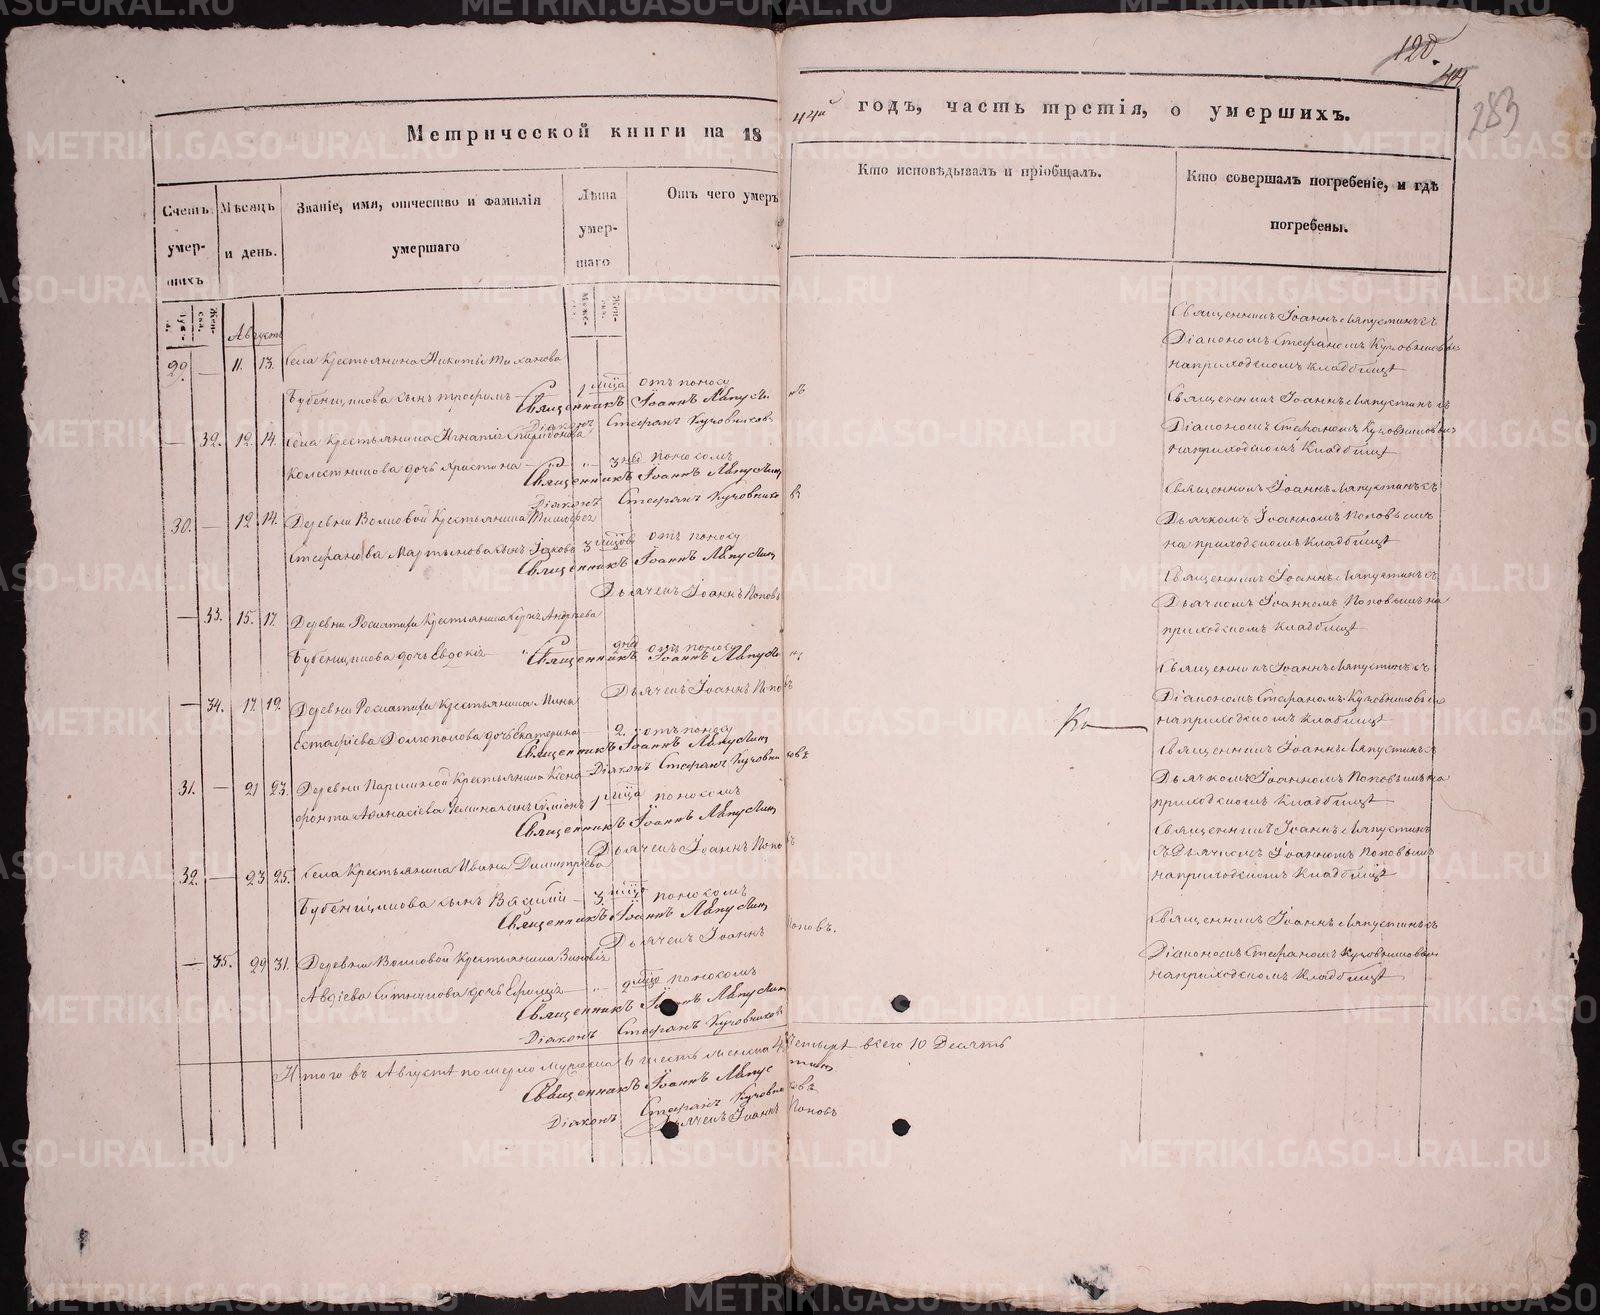 120.
44
283
Метрической книги на 18
44й годъ, часть третія, о умершихъ.
Счетъ умер-шихъ
Мѣсяцъ и день.
Званіе, имя, отчество и фамилія умершаго
Лѣта умер-шаго
Отъ чего умеръ
Кто исповѣдывалъ и пріобщалъ.
Кто совершалъ погребеніе, и гдѣ погребены.
Августъ
29. — 11. 13. Села Крестьянина Никиты
Бубенщикова сынъ Трофимъ — 1 мѣца отъ поносу
Священникъ Іоаннъ Ляпустинъ
Діаконъ Стефанъ Кузовниковъ
Священникъ Іоаннъ Ляпустинъ съ
Діакономъ Стефаномъ Кузовниковымъ
на приходскомъ кладбищѣ
— 32. 12. 14. Села Крестьянина Игнатія Спиридонова
Колесникова дочь Христина — 3 поносомъ
Священникъ Іоаннъ Ляпустинъ
Діаконъ Стефанъ Кузовниковъ
Священникъ Іоаннъ Ляпустинъ съ
Діакономъ Стефаномъ Кузовниковымъ
на приходскомъ кладбищѣ
30. — 12. 14. Деревни Волковой Крестьянина Тимофея
Стефанова Мартынова сынъ Іаковъ 3 отъ поносу
Священникъ Іоаннъ Ляпустинъ
Дьячекъ Іоаннъ Поповъ
Священникъ Іоаннъ Ляпустинъ съ
Дьячкомъ Іоанномъ Поповымъ
на приходскомъ кладбищѣ
— 33. 15. 17. Деревни Крестьянина Андреева
Бубенщикова дочь Евдокія отъ поносу
Священникъ Іоаннъ Ляпустинъ
Дьячекъ Іоаннъ Поповъ
Священникъ Іоаннъ Ляпустинъ съ
Дьячкомъ Іоанномъ Поповымъ на
приходскомъ кладбищѣ
— 34. 17. 19. Деревни Крестьянина
дочь Екатерина — 2. отъ поносу
Священникъ Іоаннъ Ляпустинъ
Діаконъ Стефанъ Кузовниковъ
Священникъ Іоаннъ Ляпустинъ съ
Діакономъ Стефаномъ Кузовниковымъ
на приходскомъ кладбищѣ
31. — 21 23. Деревни Крестьянина Ксено-
фонта Афанасіева сынъ Симіонъ 1 мѣца поносомъ
Священникъ Іоаннъ Ляпустинъ
Дьячекъ Іоаннъ Поповъ
Священникъ Іоаннъ Ляпустинъ съ
Дьячкомъ Іоанномъ Поповымъ на
приходскомъ кладбищѣ
32. — 23 25. Села Крестьянина Ивана Димитріева
Бубенщикова сынъ Василій — 3. поносомъ
Священникъ Іоаннъ Ляпустинъ
Дьячекъ Іоаннъ Поповъ.
Священникъ Іоаннъ Ляпустинъ
съ Дьячкомъ Іоанномъ Поповымъ
на приходскомъ кладбищѣ
— 35. 29 31. Деревни Волковой Крестьянина Зиновія
Авдіева дочь — 2 поносомъ
Священникъ Іоаннъ Ляпустинъ
Діаконъ Стефанъ Кузовниковъ
Священникъ Іоаннъ Ляпустинъ съ
Діакономъ Стефаномъ Кузовниковымъ
на приходскомъ кладбищѣ
Итого въ Августѣ померло мужеска 6 шесть женска 4 четыре всего 10 Десять
Священникъ Іоаннъ Ляпустинъ
Діаконъ Стефанъ Кузовниковъ
Дьячекъ Іоаннъ Поповъ
METRIKI.GASO-URAL.RU